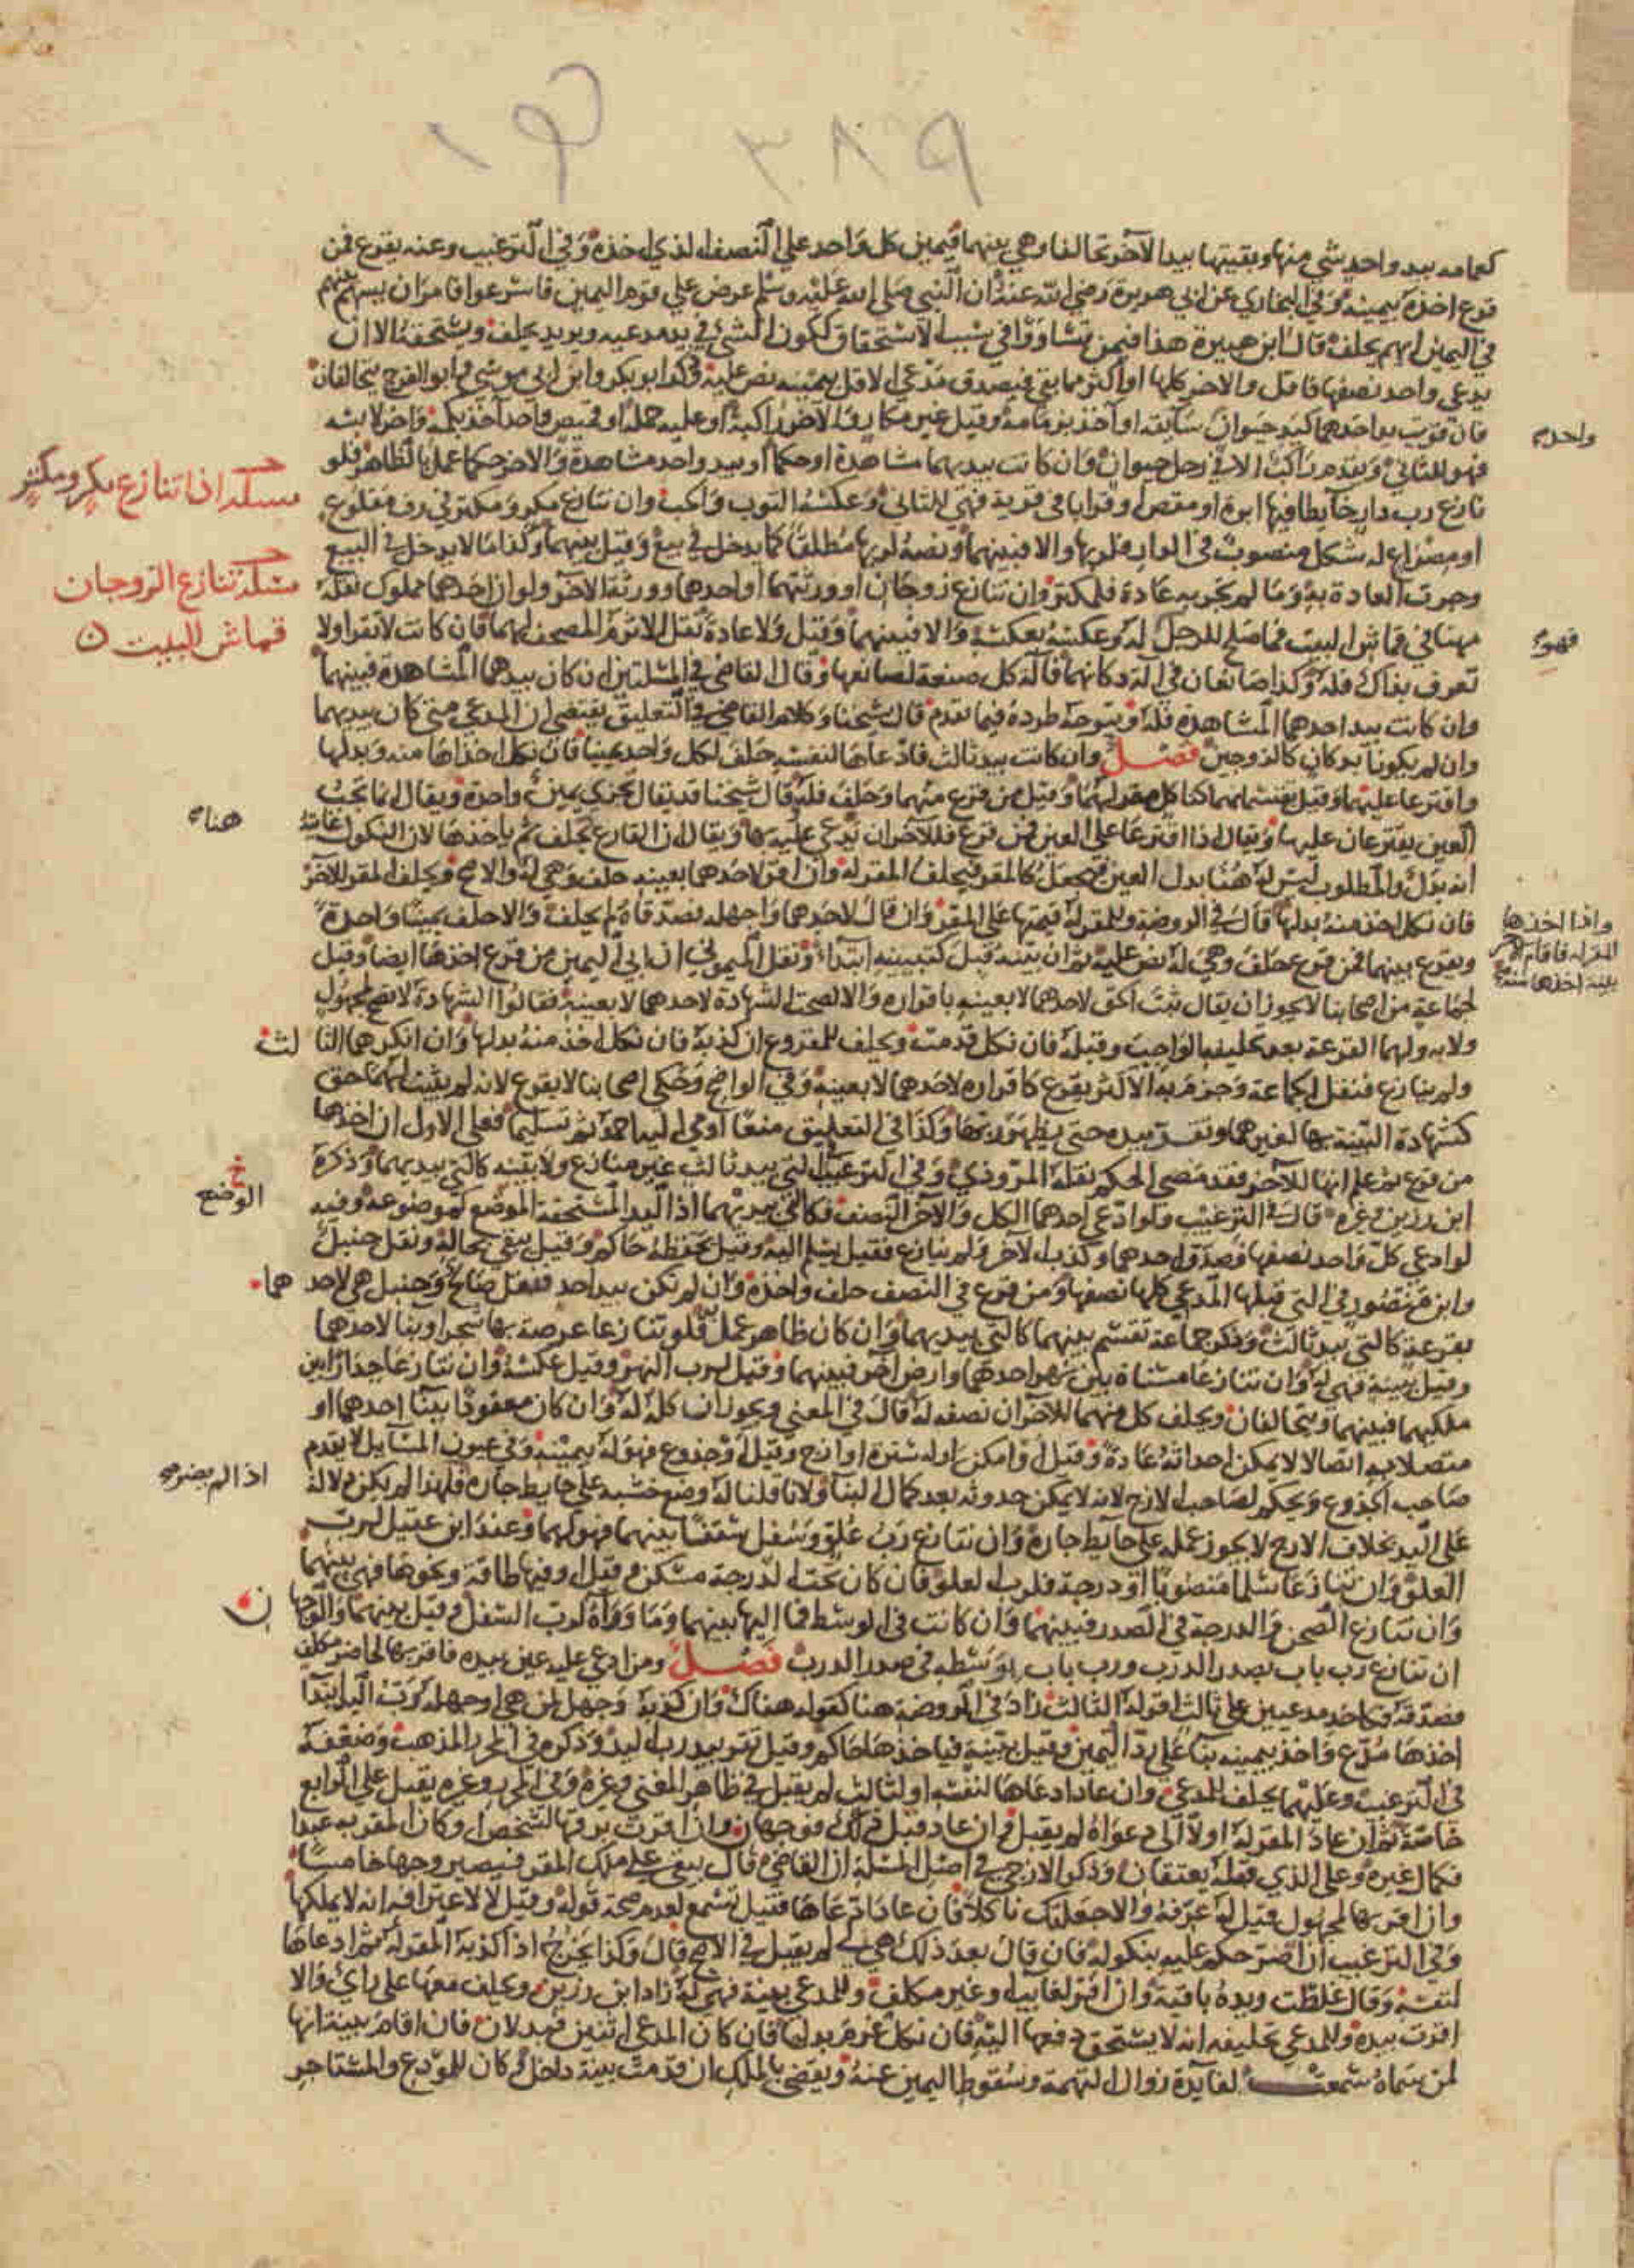 ٣٨٩
كعمامة بيد واحد شي منها وبقيتها بيد الآخر تحالفا وهي بينهما فيمين كل واحد على النصف الذي اخذه وفي الترغيب وعنه يقرع فمن
قرع اخذه بيمينه وفي البخاري عن ابي هريرة رضي الله عنه ان النبي صلى الله عليه وسلم عرض على قوم اليمين فاسرعوا فامر ان يسهم بينهم
في اليمين ايهم يحلف قال ابن هبيرة هذا فيمن تساووا في سبب الاستحقاق لكون الشي في يد مدعيه ويريد يحلف ويستحقه الا ان
يدعي واحد نصفها فاقل والاخر كلها او اكثر مما بقي فيصدق مدعي الاقل بيمينه نص عليه وذكر ابو بكر وابن ابي موسى وابو الفرج يتحالفان
فان قويت يد احدهما كيد حيوان سايقه او آخذ بزمامه وقيل غير مكار والآخر راكبه او عليه حمله او قميص واحد آخذ بكمه وآخر لابسه
فهو للثاني ويقدم راكب الا في رحل حيوان وان كانت بيديهما مشاهدة او حكما او بيد واحد مشاهدة والاخر حكما عمل بالظاهر فلو
نازع رب دار خياطا فيها ابرة او مقص او قرابا في قربة فهي للثاني وعكسه الثوب والحب وان تنازع مكر ومكتر في رف مقلوع
او مصراع له شكل منصوب في الدار فلربها والا فبينهما ونصه لربها مطلقا كما يدخل في بيع وقيل بينهما وكذا ما لا يدخل في البيع
وجرت العادة به وما لم تجر به عادة فلمكتر وان تنازع زوجان او ورثتهما او احدهما وورثة الاخر ولو ان احدهما مملوك نقله
مهنا في قماش البيت فما صلح للرجل له وعكسه بعكسه والا فبينهما وقيل ولا عادة نقل الاثرم المصحف لهما فان كانت لا تقرا ولا
تعرف بذاك فله وكذا صانعان في آلة دكانهما فآلة كل صنعة لصانعها وقال القاضي في المسئلتين ان كان بيدهما المشاهدة فبينهما
وان كانت بيد احدهما المشاهدة فله ويتوجه طرده فيما تقدم قال شيخنا وكلام القاضي في التعليق يقتضي ان المدعي متى كان بيديهما
وان لم يكونا بدكان كالزوجين فصل وان كانت بيد ثالث فادعاها لنفسه حلف لكل واحد يمينا فان نكل اخذاها منه وبدلها
واقترعا عليهما وقيل يقتسمانهما كناكل مقر لهما وقيل من قرع منهما وحلف فله قال شيخنا قد يقال تجزي يمين واحدة ويقال انما تجب
العين يقترعان عليها ويقال اذا اقترعا على العين فمن قرع فللآخر ان يدعي عليه بها ويقال ان القارع يحلف ثم ياخذها لان النكول غايته
انه بدل والمطلوب ليس له هنا بدل العين فيجعل كالمقر فيحلف المقر له وان اقر لاحدهما بعينه حلف وهي له والاصح ويحلف المقر للآخر
فان نكل اخذ منه بدلها قال في الروضة وللمقر له قيمتها على المقر وان قال لاحدهما واجهله فصدقاه لم يحلف والا حلف يمينا واحدة
ويقرع بينهما فمن قرع حلف وهي له نص عليه ثم ان بينه قبل كتبيينه ابتداء ونقل الميموني ان ابى اليمين من قرع اخذها ايضا وقيل
لجماعة من اصحابنا لا يجوز ان يقال ثبت الحق لاحدهما لا بعينه باقراره والا لصحت الشهادة لاحدهما لا بعينه فقالوا الشهادة لا تصح لمجهول
ولا به ولهما القرعة بعد تحليفه الواجب وقبله فان نكل قدمت ويحلف للمقروع ان كذبه فان نكل اخذ منه بدلها وان انكرهما الثالث
ولم ينازع فنقل الجماعة وجزم به الاكثر يقرع كاقراره لاحدهما لا بعينه وفي الواضح وحكى اصحابنا لا يقرع لانه لم يثبت لهما حق
كشهادة البينة بها لغيرهما وتقر بيده حتى يظهر ربها وكذا في التعليق منعا اومى اليه احمد ثم تسليما فعلى الاول ان اخذها
من قرع ثم علم انها للآخر فقد مضى الحكم نقله المروذي وفي الترغيب في التي بيد ثالث غير منازع ولا بينة كالتي بيديهما وذكره
ابن رزين وغيره قال في الترغيب ولو ادعى احدهما الكل والآخر النصف فكالتي بيديهما اذ اليد المستحقة الموضع لموضوعه وفيه
لو ادعى كل واحد نصفها وصدق احدهما وكذب الآخر ولم ينازع فقيل يسلم اليه وقيل يحفظه حاكم وقيل يبقى بحاله ونقل حنبل
وابن منصور في التي قبلها المدعي كلها نصفها ومن قرع في النصف حلف واخذه وان لم تكن بيد احد فنقل صالح وحنبل هي لاحدهما
بقرعة كالتي بيد ثالث وذكر جماعة تقسم بينهما كالتي بيديهما وان كان ظاهر عمل فلو تنازعا عرصة بها شجر او بنا لاحدهما
وقيل ببينة فهي له وان تنازعا مسناة بين نهر احدهما وارض آخر فبينهما وقيل لرب النهر وقيل عكسه وان تنازعا جدارا بين
ملكيهما فبينهما ويتحالفان ويحلف كل منهما للآخر ان نصفه له قال في المغني ويجوز ان كله له وان كان معقودا ببنا احدهما او
متصلا به اتصالا لا يمكن احداثه عادة وقيل او امكن او له سترة او ازج وقيل او جذوع فهو له بيمينه وفي عيون المسايل لا يقدم
صاحب الجذوع ويحكم لصاحب الازج لانه لا يمكن حدوثه بعد كمال البنا ولانا قلنا له وضع خشبه على حايط جاره فلهذا لم يكن دلالة
على اليد بخلاف الازج لا يجوز عمله على حايط جاره وان تنازع رب علو وسفل سقفا بينهما فهو لهما وعند ابن عقيل لرب
العلو وان تنازعا سلما منصوبا او درجة فلرب العلو فان كان تحت الدرجة مسكن وقيل او فيها طاقة ونحوها فهي بينهما
وان تنازع الصحن والدرجة في الصدر فبينهما وان كانت في الوسط فما اليها بينهما وما وراه لرب السفل وقيل بينهما والوجهان
ان تنازع رب باب بصدر الدرب ورب باب بوسطه في صدر الدرب فصل ومن ادعي عليه عين بيده فاقر بها لحاضر مكلف
فصدقه فكاحد مدعيين على ثالث اقر له الثالث زاد في الروضة هنا كقوله هناك وان كذبه وجهل لمن هي او جهله رب اليد ابتدا
اخذها مدع واخذ بيمينه بنا على رد اليمين وقيل ببينة فياخذها حاكم وقيل تقر بيد رب اليد وذكره في المحرر المذهب وضعفه
في الترغيب وعليهما يحلف للمدعي وان عاد ادعاها لنفسه او لثالث لم يقبل في ظاهر المغني وغيره وفي المحرر وغيره يقبل على الرابع
خاصة ثم ان عاد المقر له اولا الى دعواه لم يقبل وان عاد قبل ذلك فوجهان وان اقرت برقها لشخص او كان المقر به عبدا
فكمال غيره وعلى الذي قبله يعتقان وذكر الازجي في اصل المسئلة ان القاضي قال يبقى على ملك المقر فيصير وجها خامسا
وان اقر بها لمجهول قيل له عرفه والا جعلتك ناكلا فان عاد ادعاها فقيل تسمع لعدم صحة قوله وقيل لا لاعترافه انه لا يملكها
وفي الترغيب ان اصر حكم عليه بنكوله فان قال بعد ذلك هي لي لم يقبل في الاصح قال وكذا يخرج اذا اكذبه المقر له ثم ادعاها
لنفسه وقال غلطت ويده باقية وان اقر لغايب او غير مكلف وللمدعي بينة فهي له زاد ابن رزين ويحلف معها على راي والا
اقرت بيده وللمدعي تحليفه انه لا يستحق دفعها اليه فان نكل غرم بدلها فان كان المدعي اثنين فبدلان فان اقام بينة انها
لمن سماه سمعت لفايدة زوال التهمة وسقوط اليمين عنه ويقضى بالملك ان قدمت بينة داخل وكان للمودع والمستاجر
مسئلة اذا تنازع مكر ومكتر
مسئلة تنازع الزوجان
قماش البيت
هناه
الوضع
اذا لم يضر
فهو
واذا اخذها
المقر له فاقام الاخر
بينة اخذها منه